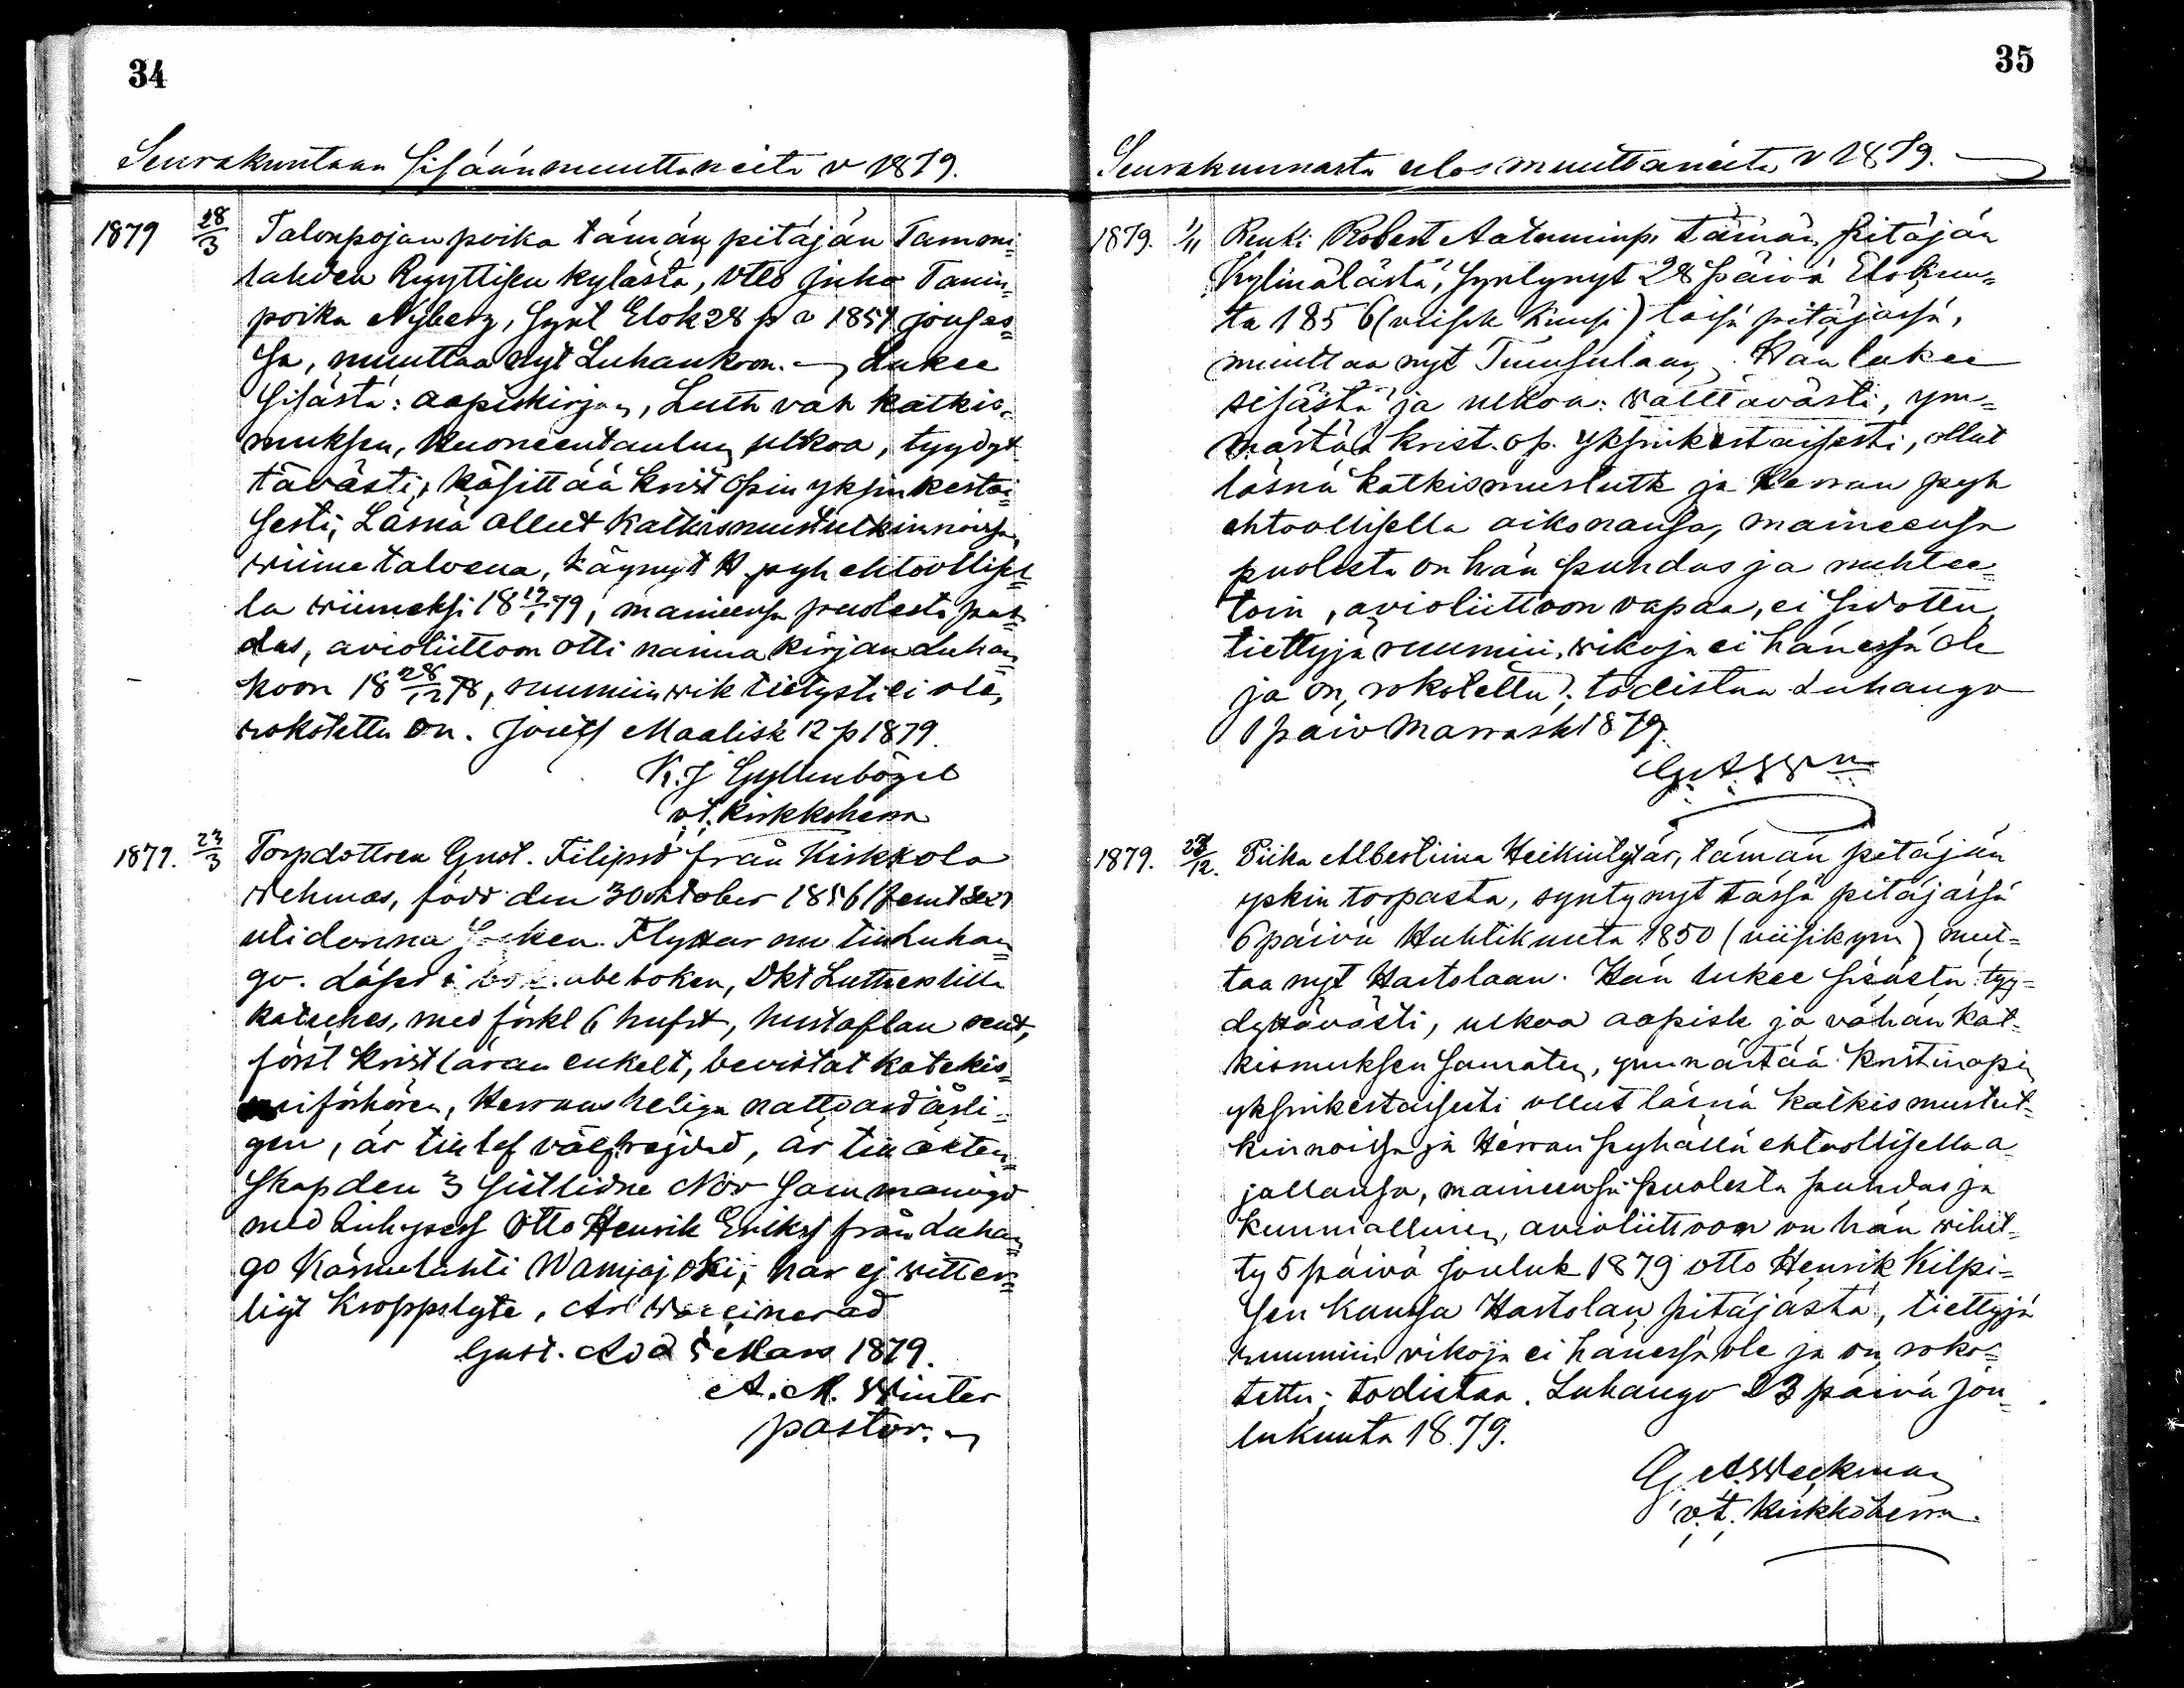 34
Seurakuntaan sisäänmuuttaneita v 1879.
1879 28/3 Talonpojan poika tämän pitäjän Tamoni-
lahden Ryyttisen kylästä, Otto Juho Tanin-
poika Nyberg, synt Elok 28 p v 1854 jousas-
sa, muuttaa nyt Luhankoon. Lukee
sisästä: aapiskirjan, Luth väh katkis-
muksen, Huoneentaulun ulkoa, tyydyt
tävästi, käsittää krist opin yksinkertai
sesti, Läsnä ollut katkismustutkinnoissa
wiime talvena, käynyt H pyh ehtoollisel-
la wiimeksi 18 19/1 79, maineensa puolesta puh-
das, avioliittoon otti naima kirjan Luhan-
koon 18 28/12 78, ruumiin wik tietysti ei ole,
rokotettu on. Maalisk 12 p 1879.
K. J Gyllenbögel
vt. kirkkoherra
1879. 23/3 Torpdottren Gust. Filipsd från Kirkkola
Wehmas, född den 30 oktober 1856 femt sex
uti denna Flyttar nu till Luhan
go. Läser i bok abeboken, Dkt Luthers lilla
kateches, med förkl 6 hufst, hustaflan
först kristläran enkelt, bevistat katekis-
miförhören, Herrans heliga nattvard årli-
gen, är till lef välfrejdad, är till äkten-
skap den 3 sistlidne Nov sammanvigd
med Otto Henrik Eriks från Luhan
go Kärnelahti Wanjajoki, har ej witter-
ligt kroppslyte, Är waccinerad
Gust. Ad d 5 Mars 1879.
A. M. Winter
pastor.
35
Seurakunnasta ulosmuuttaneita v 1879.
1879. 1/11 Renki Robert Aataminp. tämän pitäjän
Kylmälästä, syntynyt 28 päivä Elokuu-
ta 1856 (viisik kuusi) täisä pitäjässä,
muuttaa nyt Tuusulaan. Hän lukee
sisästä ja ulkoa: wälttävästi, ym-
märtää krist. op. yksinkertaisesti, ollut
läsnä katkismustutk ja Herran pyh
ehtoollisella aikonansa, maineensa
puolesta on hän puhdas ja nuhtee-
toin, avioliittoon vapaa, ei sidottu,
tiettyjä ruumiin wikoja ei hänessä ole
ja on rokotettu; todistaa Luhango
1 päiv Marrask 1879.
1879. 23/12. Piika Albertiina Heikintytär, tämän pitäjän
torpasta, syntynyt tässä pitäjässä
6 päivä Huhtikuuta 1850 (viisikym) muut-
taa nyt Hartolaan. Hän lukee sisästä tyy-
dyttävästi, ulkoa aapisk ja vähän kat-
kismuksen samaten, ymmärtää kristinopin
yksinkertaisesti ollut läsnä katkismustut-
kinnoissa ja Herran pyhällä ehtoollisella a
jallansa, maineensa puolesta puhdas ja
kunniallinen, avioliittoon on hän wihit-
ty 5 päivä jouluk 1879 Otto Henrik Kilpi-
sen kanssa Hartolan pitäjästä, tiettyjä
ruumiin vikoja ei hänessä ole ja on roko-
tettu; todistaa. Luhango 23 päivä jou-
lukuuta 1879.
G. A. Weckman
v.t. kirkkoherra.